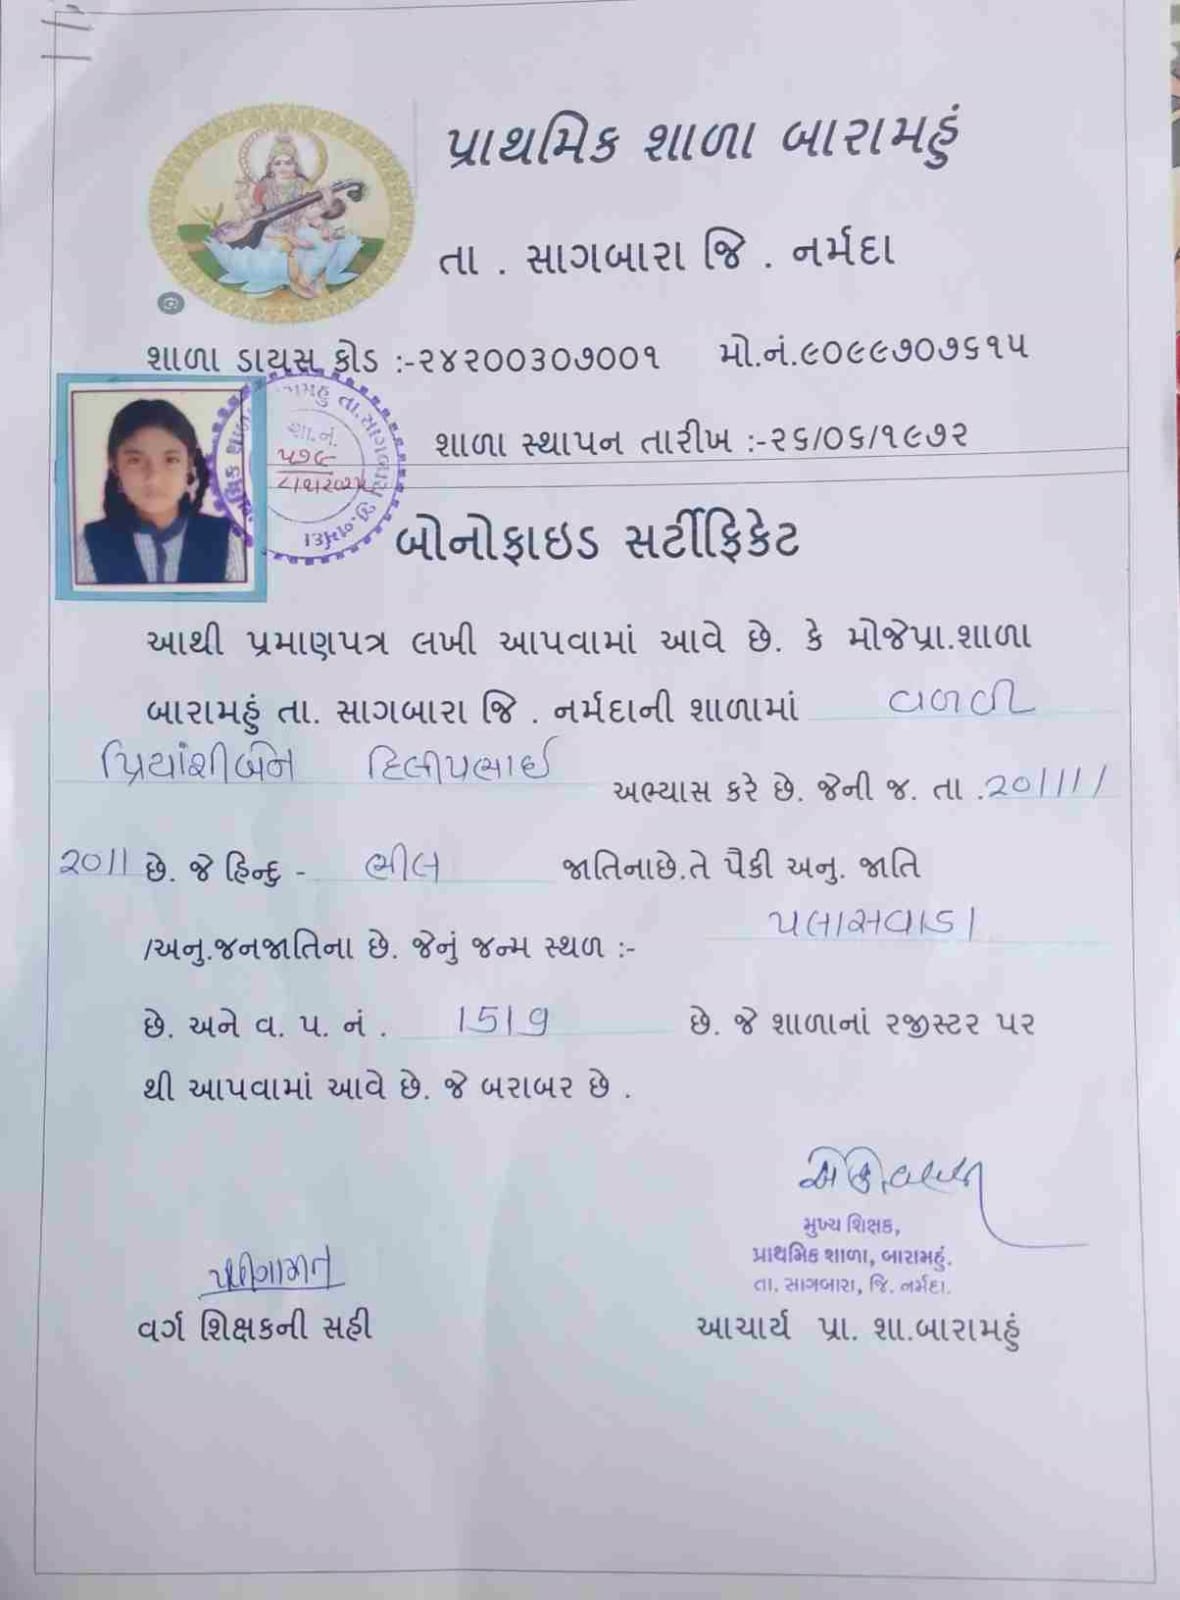 પ્રાથમિક શાળા બારામહું
તા . સાગબારા જિ . નર્મદા
શાળા ડાયસ કોડ :-૨૪૨૦૦૩૦૭૦૦૧ મો.નં.૯૦૯૯૭૦૭૬૧૫
શાળા સ્થાપન તારીખ :-૨૬/૦૬/૧૯૭૨
શા.નં.
બોનોફાઇડ સર્ટીફિકેટ
આથી પ્રમાણપત્ર લખી આપવામાં આવે છે. કે મોજેપ્રા.શાળા
બારામહું તા. સાગબારા જિ . નર્મદાની શાળામાં વળવી
પ્રિયાંશીબેન દિલીપભાઇ અભ્યાસ કરે છે. જેની જ. તા .20/11/
2011 છે. જે હિન્દુ - ભીલ જાતિનાછે.તે પૈકી અનુ. જાતિ
/અનુ.જનજાતિના છે. જેનું જન્મ સ્થળ :- પલાસવાડા
છે. અને વ. પ. નં . 1519 છે. જે શાળાનાં રજીસ્ટર પર
થી આપવામાં આવે છે. જે બરાબર છે .
મુખ્ય શિક્ષક,
પ્રાથમિક શાળા, બારામહું.
તા. સાગબારા, જિ. નર્મદા.
વર્ગ શિક્ષકની સહી આચાર્ય પ્રા. શા.બારામહું